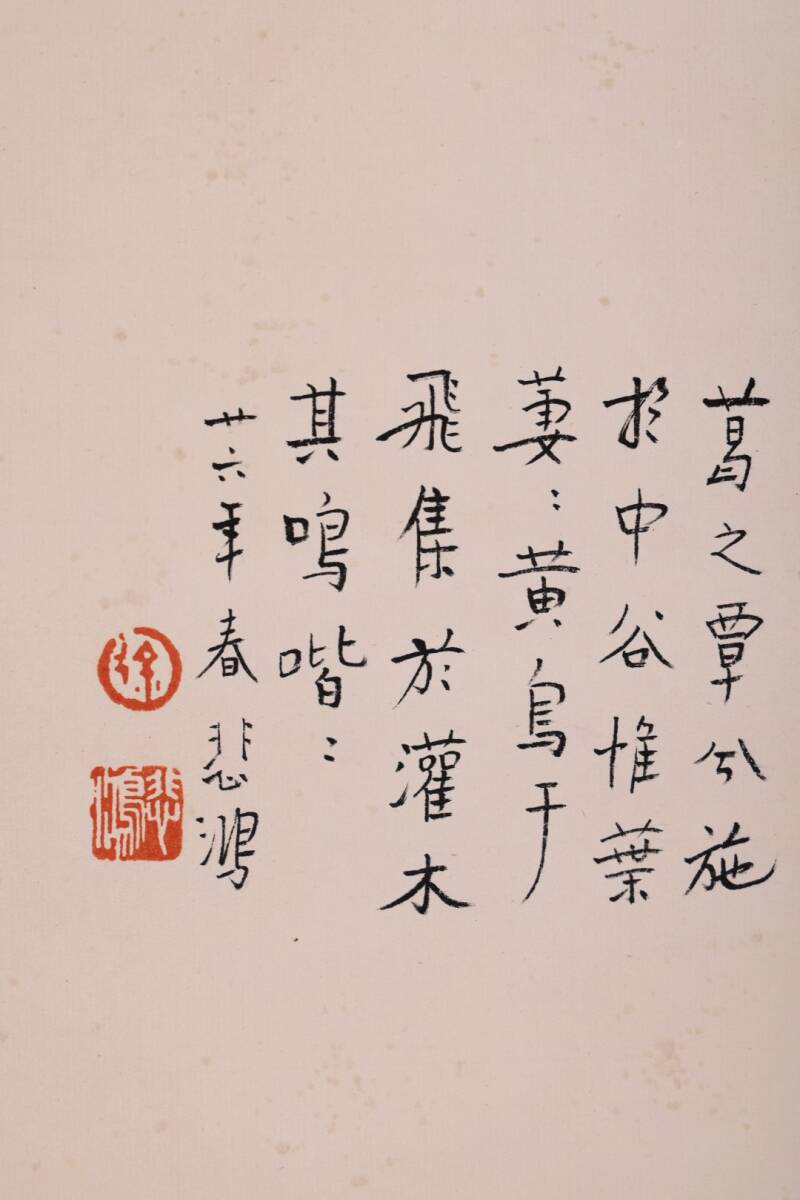 葛之覃兮施
於中谷惟葉
萋〻黃鳥于
飛集於灌木
其鳴喈〻
廿六年春悲鴻
徐
悲鴻